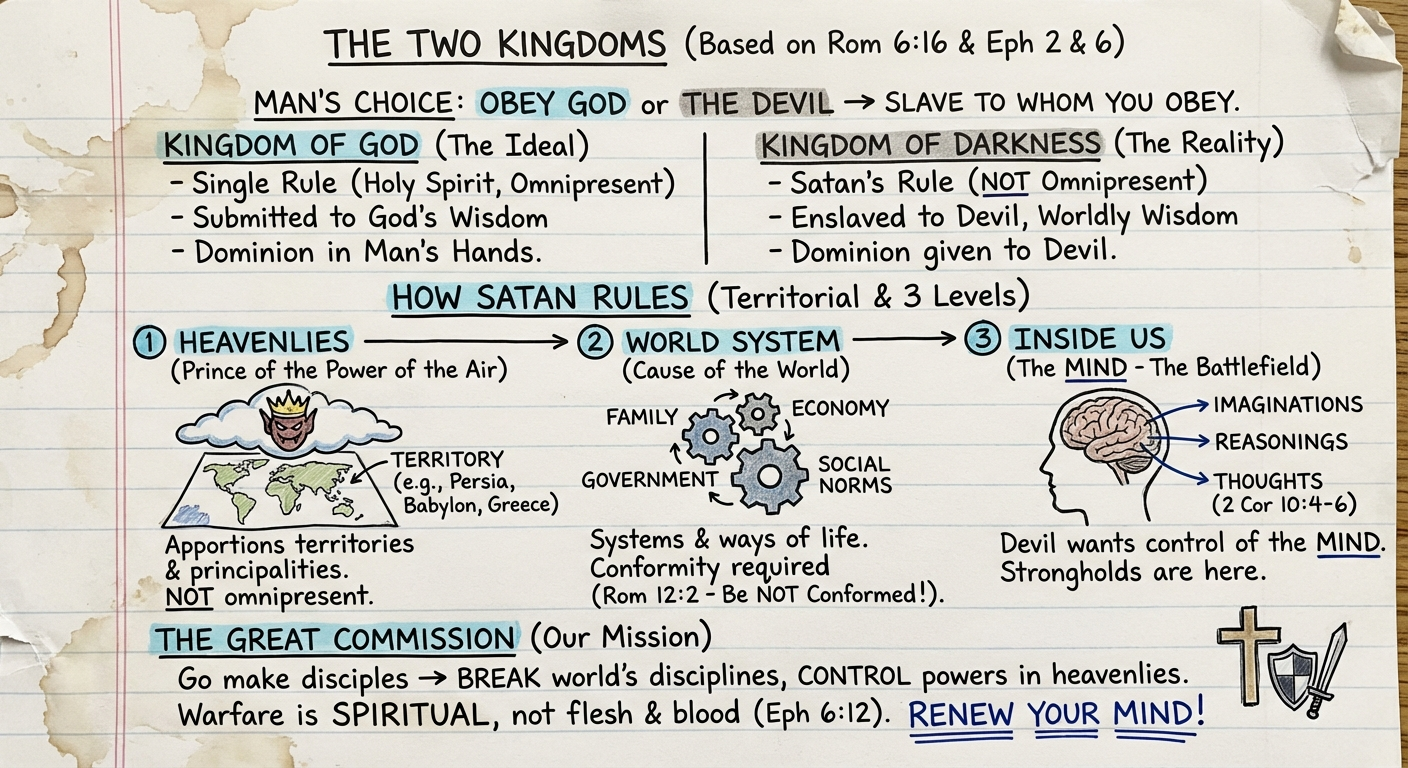 THE TWO KINGDOMS (Based on Rom 6:16 & Eph 2 & 6)
MAN'S CHOICE: OBEY GOD or THE DEVIL → SLAVE TO WHOM YOU OBEY.
KINGDOM OF GOD (The Ideal)
- Single Rule (Holy Spirit, Omnipresent)
- Submitted to God's Wisdom
- Dominion in Man's Hands.
KINGDOM OF DARKNESS (The Reality)
- Satan's Rule (NOT Omnipresent)
- Enslaved to Devil, Worldly Wisdom
- Dominion given to Devil.
HOW SATAN RULES (Territorial & 3 Levels)
1 HEAVENLIES
(Prince of the Power of the Air)
TERRITORY
(e.g., Persia,
Babylon, Greece)
Apportions territories
& principalities.
NOT omnipresent.
2 WORLD SYSTEM
(Cause of the World)
FAMILY
ECONOMY
GOVERNMENT
SOCIAL
NORMS
Systems & ways of life.
Conformity required
(Rom 12:2 - Be NOT Conformed!).
3 INSIDE US
(The MIND - The Battlefield)
IMAGINATIONS
REASONINGS
THOUGHTS
(2 Cor 10:4-6)
Devil wants control of the MIND.
Strongholds are here.
THE GREAT COMMISSION (Our Mission)
Go make disciples → BREAK world's disciplines, CONTROL powers in heavenlies.
Warfare is SPIRITUAL, not flesh & blood (Eph 6:12). RENEW YOUR MIND!